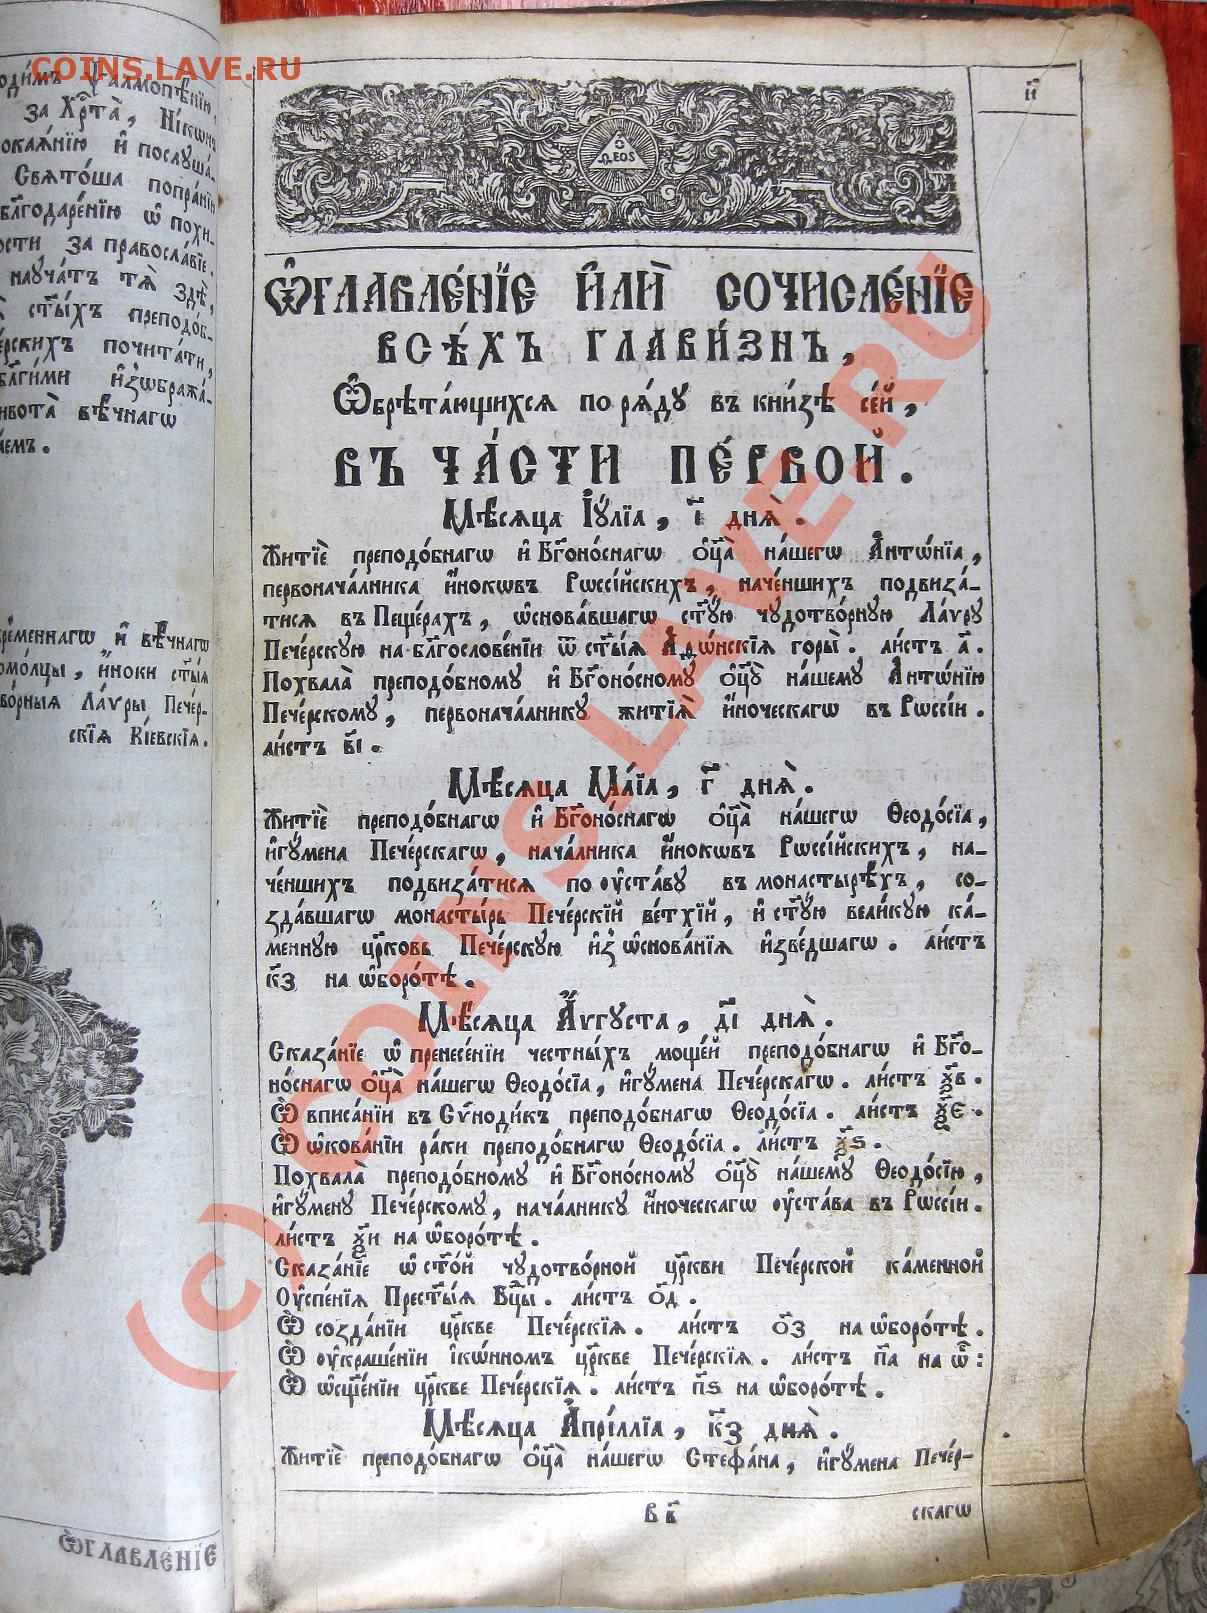 COINS.LAVE.RU
за Хрⷭ҇та̀, Нікѡнъ
ока́янїю и҆ послꙋша-
Свято́ша попра́нїю
бл҃годаре́нїю ѡ҆ похи-
ости за правосла́вїе.
наꙋча́тъ тѧ̀ здѣ̀,
ст҃ы́хъ преподо́б-
е́рскихъ почита́ти,
бл҃ги́ми и҆зѡбража́-
живота̀ вѣ́чнагѡ
а́емъ.
вре́меннагѡ и҆ вѣ́чнагѡ
омо́лцы, и҆́ноки ст҃ы́ѧ
во́рныѧ Ла́ѵры Пече́р-
скїѧ Кі́евскїѧ.
Ѡ҆ГЛАВЛЕ́НЇЕ
и҃
ѲЕОЅ
Ѡ҆ГЛАВЛЕ́НЇЕ И҆ЛЍ СОЧИСЛЕ́НЇЕ
ВСѢ́ХЪ ГЛАВИ́ЗНЪ,
Ѡ҆брѣта́ющихсѧ по рѧ́дꙋ въ кни́зѣ се́й,
ВЪ ЧА́СТИ ПЕ́РВОЙ.
Мѣ́сѧца І҆ꙋ́лїа, і҃ днѧ̀.
Житїѐ преподо́бнагѡ и҆ Бг҃оно́снагѡ ѻ҆ц҃а̀ на́шегѡ А҆нтѡ́нїа,
первонача́лника и҆́нокѡвъ Рѡссі́йскихъ, наче́ншихъ подвиза́-
тисѧ въ Пеще́рахъ, ѡ҆снова́вшагѡ ст҃ꙋ́ю чꙋдотво́рнꙋю Ла́ѵрꙋ
Пече́рскꙋю на бл҃гослове́нїи ѿ ст҃ы́ѧ А҆ѳѡ́нскїѧ горы̀. ли́стъ а҃.
Похвала̀ преподо́бномꙋ и҆ Бг҃оно́сномꙋ ѻ҆ц҃ꙋ̀ на́шемꙋ А҆нтѡ́нїю
Пече́рскомꙋ, первонача́лникꙋ житїѧ̀ и҆́ноческагѡ въ Рѡссі́и.
ли́стъ в҃і.
Мѣ́сѧца Ма́їа, г҃ днѧ̀.
Житїѐ преподо́бнагѡ и҆ Бг҃оно́снагѡ ѻ҆ц҃а̀ на́шегѡ Ѳеодо́сїа,
и҆гꙋ́мена Пече́рскагѡ, нача́лника и҆́нокѡвъ Рѡссі́йскихъ, на-
че́ншихъ подвиза́тисѧ по ꙋ҆ста́вꙋ въ монастырѣ́хъ, со-
зда́вшагѡ монасты́рь Пече́рскїй ве́тхїй, и҆ ст҃ꙋ́ю вели́кꙋю ка́-
меннꙋю цр҃ковь Пече́рскꙋю и҆з̾ ѡ҆снова́нїѧ и҆зве́дшагѡ. ли́стъ
к҃з на ѡ҆боро́тѣ.
Мѣ́сѧца А҆́ѵгꙋста, д҃і днѧ̀.
Сказа́нїе ѡ҆ пренесе́нїи честны́хъ моще́й преподо́бнагѡ и҆ Бг҃о-
но́снагѡ ѻ҆ц҃а̀ на́шегѡ Ѳеодо́сїа, и҆гꙋ́мена Пече́рскагѡ. ли́стъ ѯ҃в.
Ѡ҆ вписа́нїи въ Сѷноди́къ преподо́бнагѡ Ѳеодо́сїа. ли́стъ ѯ҃є.
Ѡ҆ ѡ҆кова́нїи ра́ки преподо́бнагѡ Ѳеодо́сїа. ли́стъ ѯ҃ѕ.
Похвала̀ преподо́бномꙋ и҆ Бг҃оно́сномꙋ ѻ҆ц҃ꙋ̀ на́шемꙋ Ѳеодо́сїю,
и҆гꙋ́менꙋ Пече́рскомꙋ, нача́лникꙋ и҆́ноческагѡ ꙋ҆ста́ва въ Рѡссі́и.
ли́стъ ѯ҃и на ѡ҆боро́тѣ.
Сказа́нїе ѡ҆ ст҃о́й чꙋдотво́рной цр҃кви Пече́рской ка́менной
Оу҆спе́нїѧ Прест҃ы́ѧ Бц҃ы. ли́стъ ѻ҃д.
Ѡ҆ созда́нїи цр҃кве Пече́рскїѧ. ли́стъ ѻ҃з на ѡ҆боро́тѣ.
Ѡ҆ ꙋ҆краше́нїи і҆кѡ́нномъ цр҃кве Пече́рскїѧ. ли́стъ п҃а на ѡ҆:
Ѡ҆ ѡ҆сщ҃е́нїи цр҃кве Пече́рскїѧ. ли́стъ п҃ѕ на ѡ҆боро́тѣ.
Мѣ́сѧца А҆прі́ллїа, к҃з днѧ̀.
Житїѐ преподо́бнагѡ ѻ҆ц҃а̀ на́шегѡ Стефа́на, и҆гꙋ́мена Пече́р-
в҃ скагѡ
(c) COINS.LAVE.RU